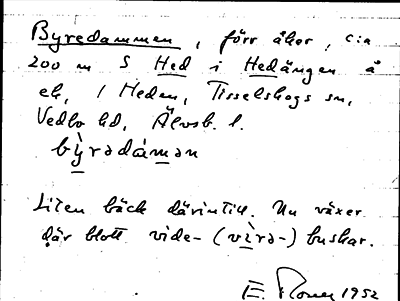 Byredammen, förr åker, c:a
200 m S Hed i Hedängen å
ek, 1 Heden, Tisselskogs sn,
Vedbo hd, Älvsb. l.
by̆rədàmən
Liten bäck därintill. Nu växer
där blott vide- (virə-) buskar.
E. 1952